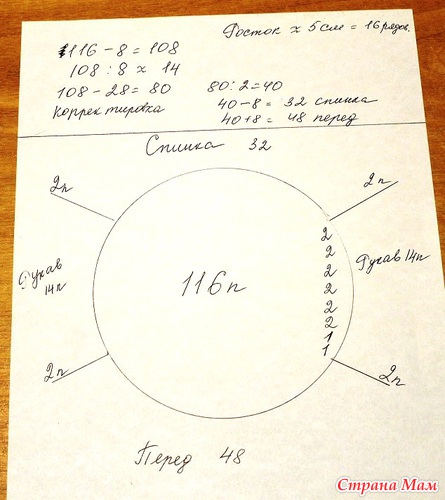 Росток х 5 см = 16 рядов.
116 - 8 = 108
108 : 8 х 14
108 - 28 = 80
80 : 2 = 40
Корректировка
40 - 8 = 32 спинка
40 + 8 = 48 перед
Спинка 32
2п
2п
Рукав
14п
116п
2
2
2
2
2
2
1
1
Рукав 14п
2п
2п
Перед 48
Страна Мам